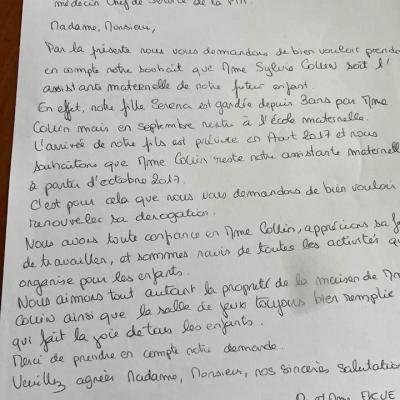 médecin Chef de Service de la PMI.
Madame, Monsieur,
Par la présente nous vous demandons de bien vouloir prendre
en compte notre souhait que Mme Sylvie Collin soit l'
assistante maternelle de notre futur enfant.
En effet, notre fille Serena est gardée depuis 3ans par Mme
Collin mais en septembre rentre à l'école maternelle.
L'arrivée de notre fils est prévue en Août 2017 et nous
souhaitons que Mme Collin reste notre assistante maternelle
à partir d'octobre 2017.
C'est pour cela que nous vous demandons de bien vouloir
renouveler sa derogation.
Nous avons toute confiance en Mme Collin, apprécions sa
de travailler, et sommes ravis de toutes les activités
organise pour les enfants.
Nous aimons tout autant la propreté de la maison de Mme
Collin ainsi que la salle de jeux toujours bien remplie
qui fait la joie de tous les enfants.
Merci de prendre en compte notre demande.
Veuillez agréer Madame, Monsieur, nos sincères salutation